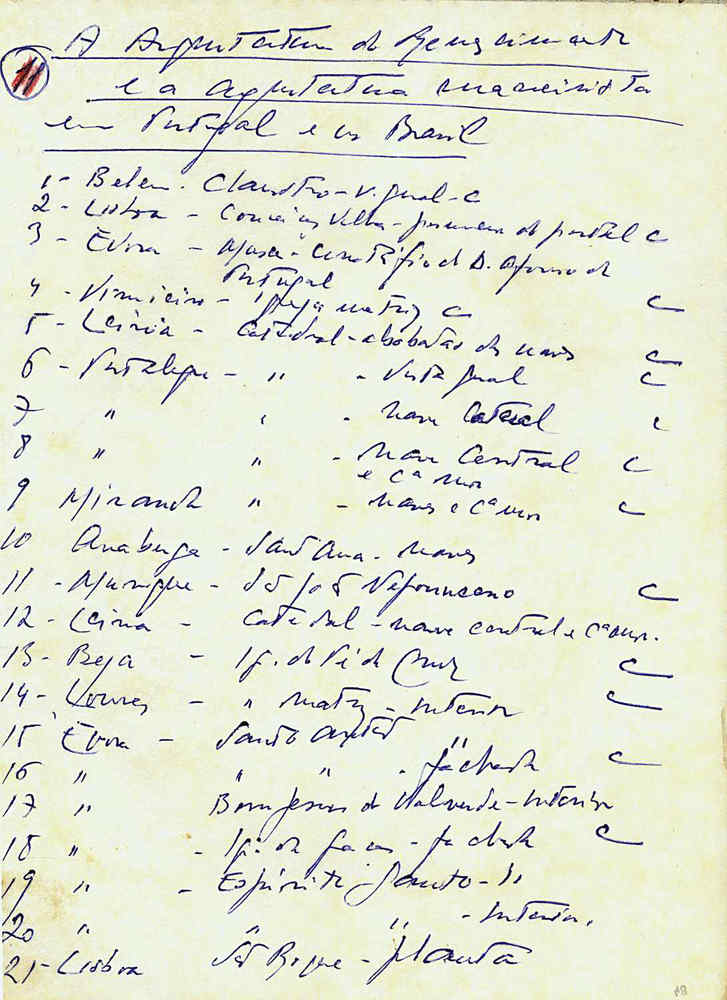 11
A Arquitetura do Renascimento
e a arquitetura maneirista
em Portugal e no Brasil
1 - Belem. Claustro - v. geral - c
2 - Lisboa - Conceição Velha - pormenor do portal c
3 - Évora - Museu - Cenotáfio de D. Afonso de
Portugal c
4 - Vimieiro - Igreja matriz c
5 - Leiria - Catedral - abobadas das naves c
6 - Portalegre - " - Vista geral c
7 " " - Nave lateral c
8 " " - Nave Central c
e Cª Mor
9 Miranda " - Naves e Cª Mor c
10 Anaberga - Sant Ana - Naves
11 - Munique - S. João Nepomuceno c
12 - Leiria - Catedral - nave central e Cª mor.
13 - Beja - Ig. do Pé da Cruz c
14 - Loures - " matriz - interior c
15 Évora - Santo Antão "
16 " " " - fachada c
17 " Bom Jesus de Valverde - Interior
18 " - Ig. da Graça - fachada c
19 " - Espírito Santo - "
20 " " " - Interior.
21 - Lisboa São Roque - planta